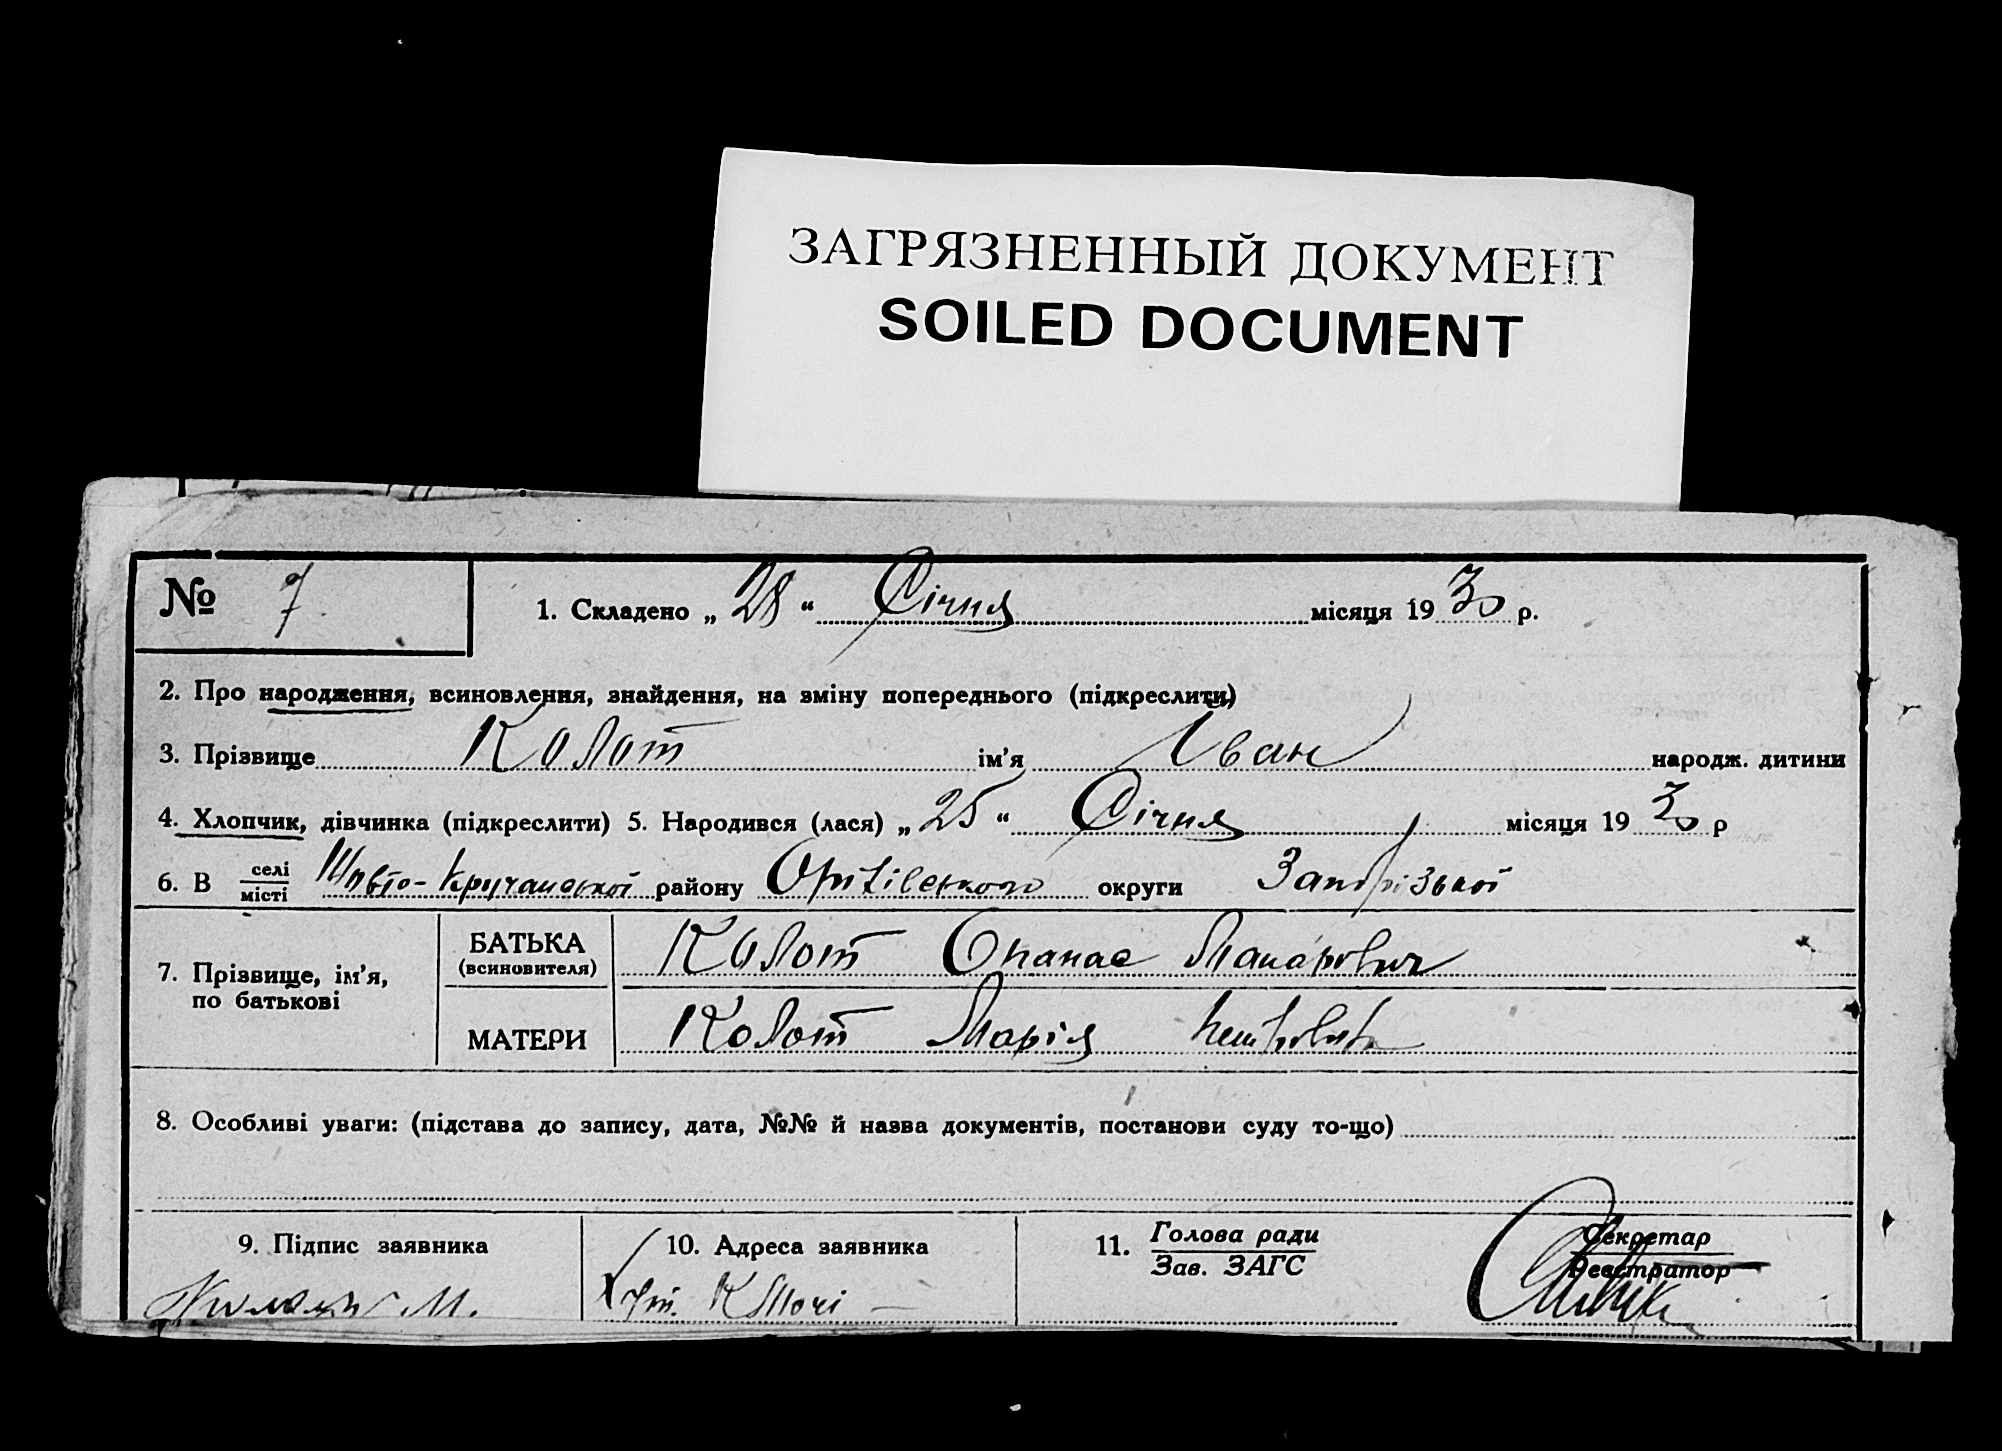 ЗАГРЯЗНЕННЫЙ ДОКУМЕНТ
SOILED DOCUMENT
№ 7
1. Складено „ 28 “ Січня місяця 1930 р.
2. Про народження, всиновлення, знайдення, на зміну попереднього (підкреслити)
3. Прізвище Колот ім’я Іван народж. дитини
4. Хлопчик, дівчинка (підкреслити) 5. Народився (лася) „ 25 “ Січня місяця 1930 р
6. В селі місті району округи Запорізької
7. Прізвище, ім’я, по батькові
БАТЬКА (всиновителя) Колот Опанас Макарович
МАТЕРИ Колот Марія
8. Особливі уваги: (підстава до запису, дата, №№ й назва документів, постанови суду то-що)
9. Підпис заявника
10. Адреса заявника
11. Голова ради Зав. ЗАГС
Секретар Реєстратор